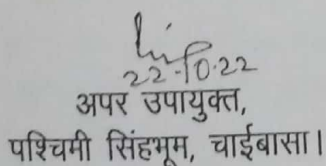 22-10-22
अपर उपायुक्त,
पश्चिमी सिंहभूम, चाईबासा।